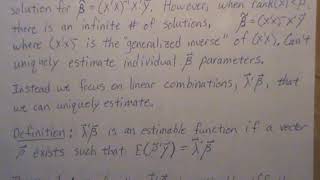 solution for β̂ = (X'X)⁻¹X'ȳ. However, when rank(X)<p,
there is an infinite # of solutions, β̃ = (X'X)⁻X'ȳ
where (X'X)⁻ is the "generalized inverse" of (X'X). Can't
uniquely estimate individual β parameters.
Instead we focus on linear combinations, λ'β, that
we can uniquely estimate.
Definition: λ'β is an estimable function if a vector
ρ exists such that E(ρ'y) = λ'β